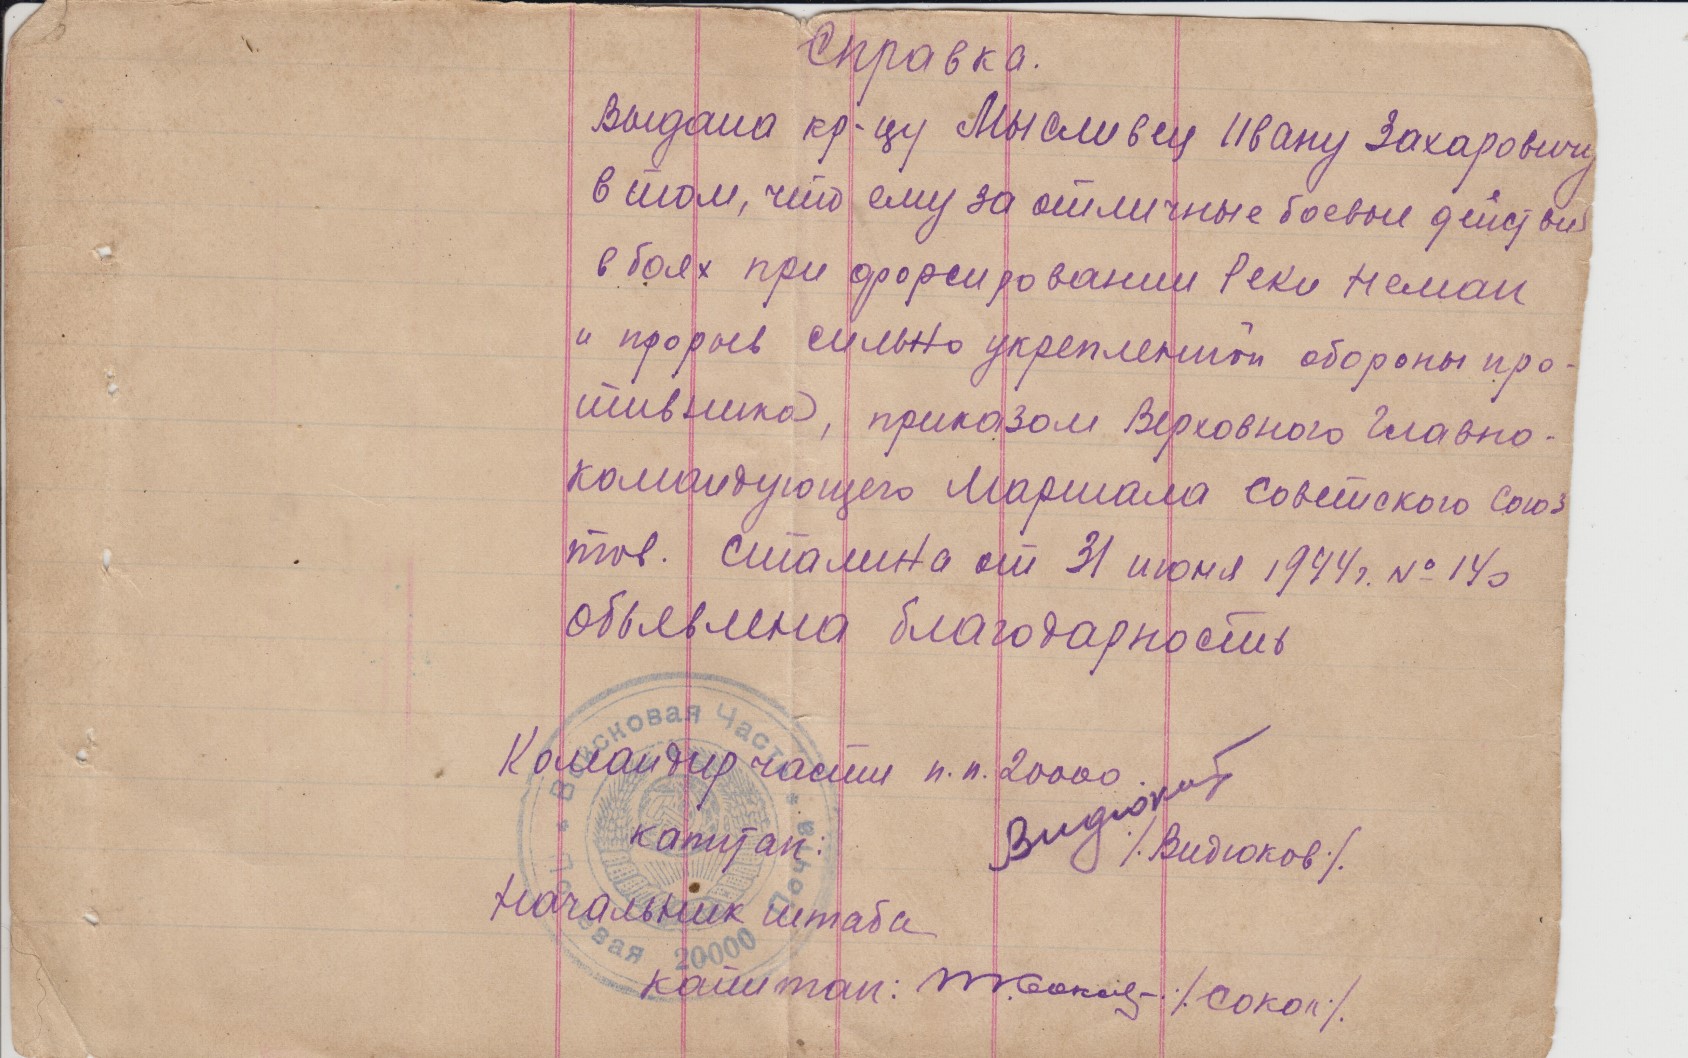 Справка.
Выдана кр-цу Мысливец Ивану Захаровичу
в том, что ему за отличные боевые действия
в боях при форсировании Реки Неман
и прорыв сильно укрепленной обороны про-
тивника, приказом Верховного Главно-
командующего Маршала Советского Союз
тов. Сталина от 31 июня 1944 г. № 140
объявлена благодарность
Командир части п.п. 20000.
капитан: Видюков /.Видюков./.
Начальник штаба
капитан: /.Сокол./.
Войсковая Часть * Полевая Почта * 20000